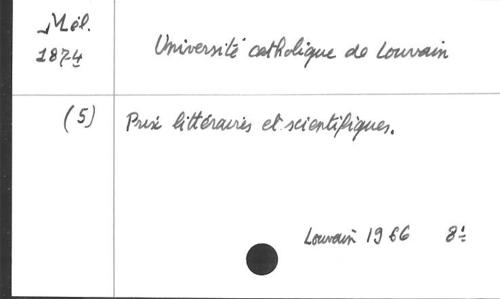 Mél.
1874
Université catholique de Louvain
(5)
Prix littéraires et scientifiques.
Louvain 1966 8º